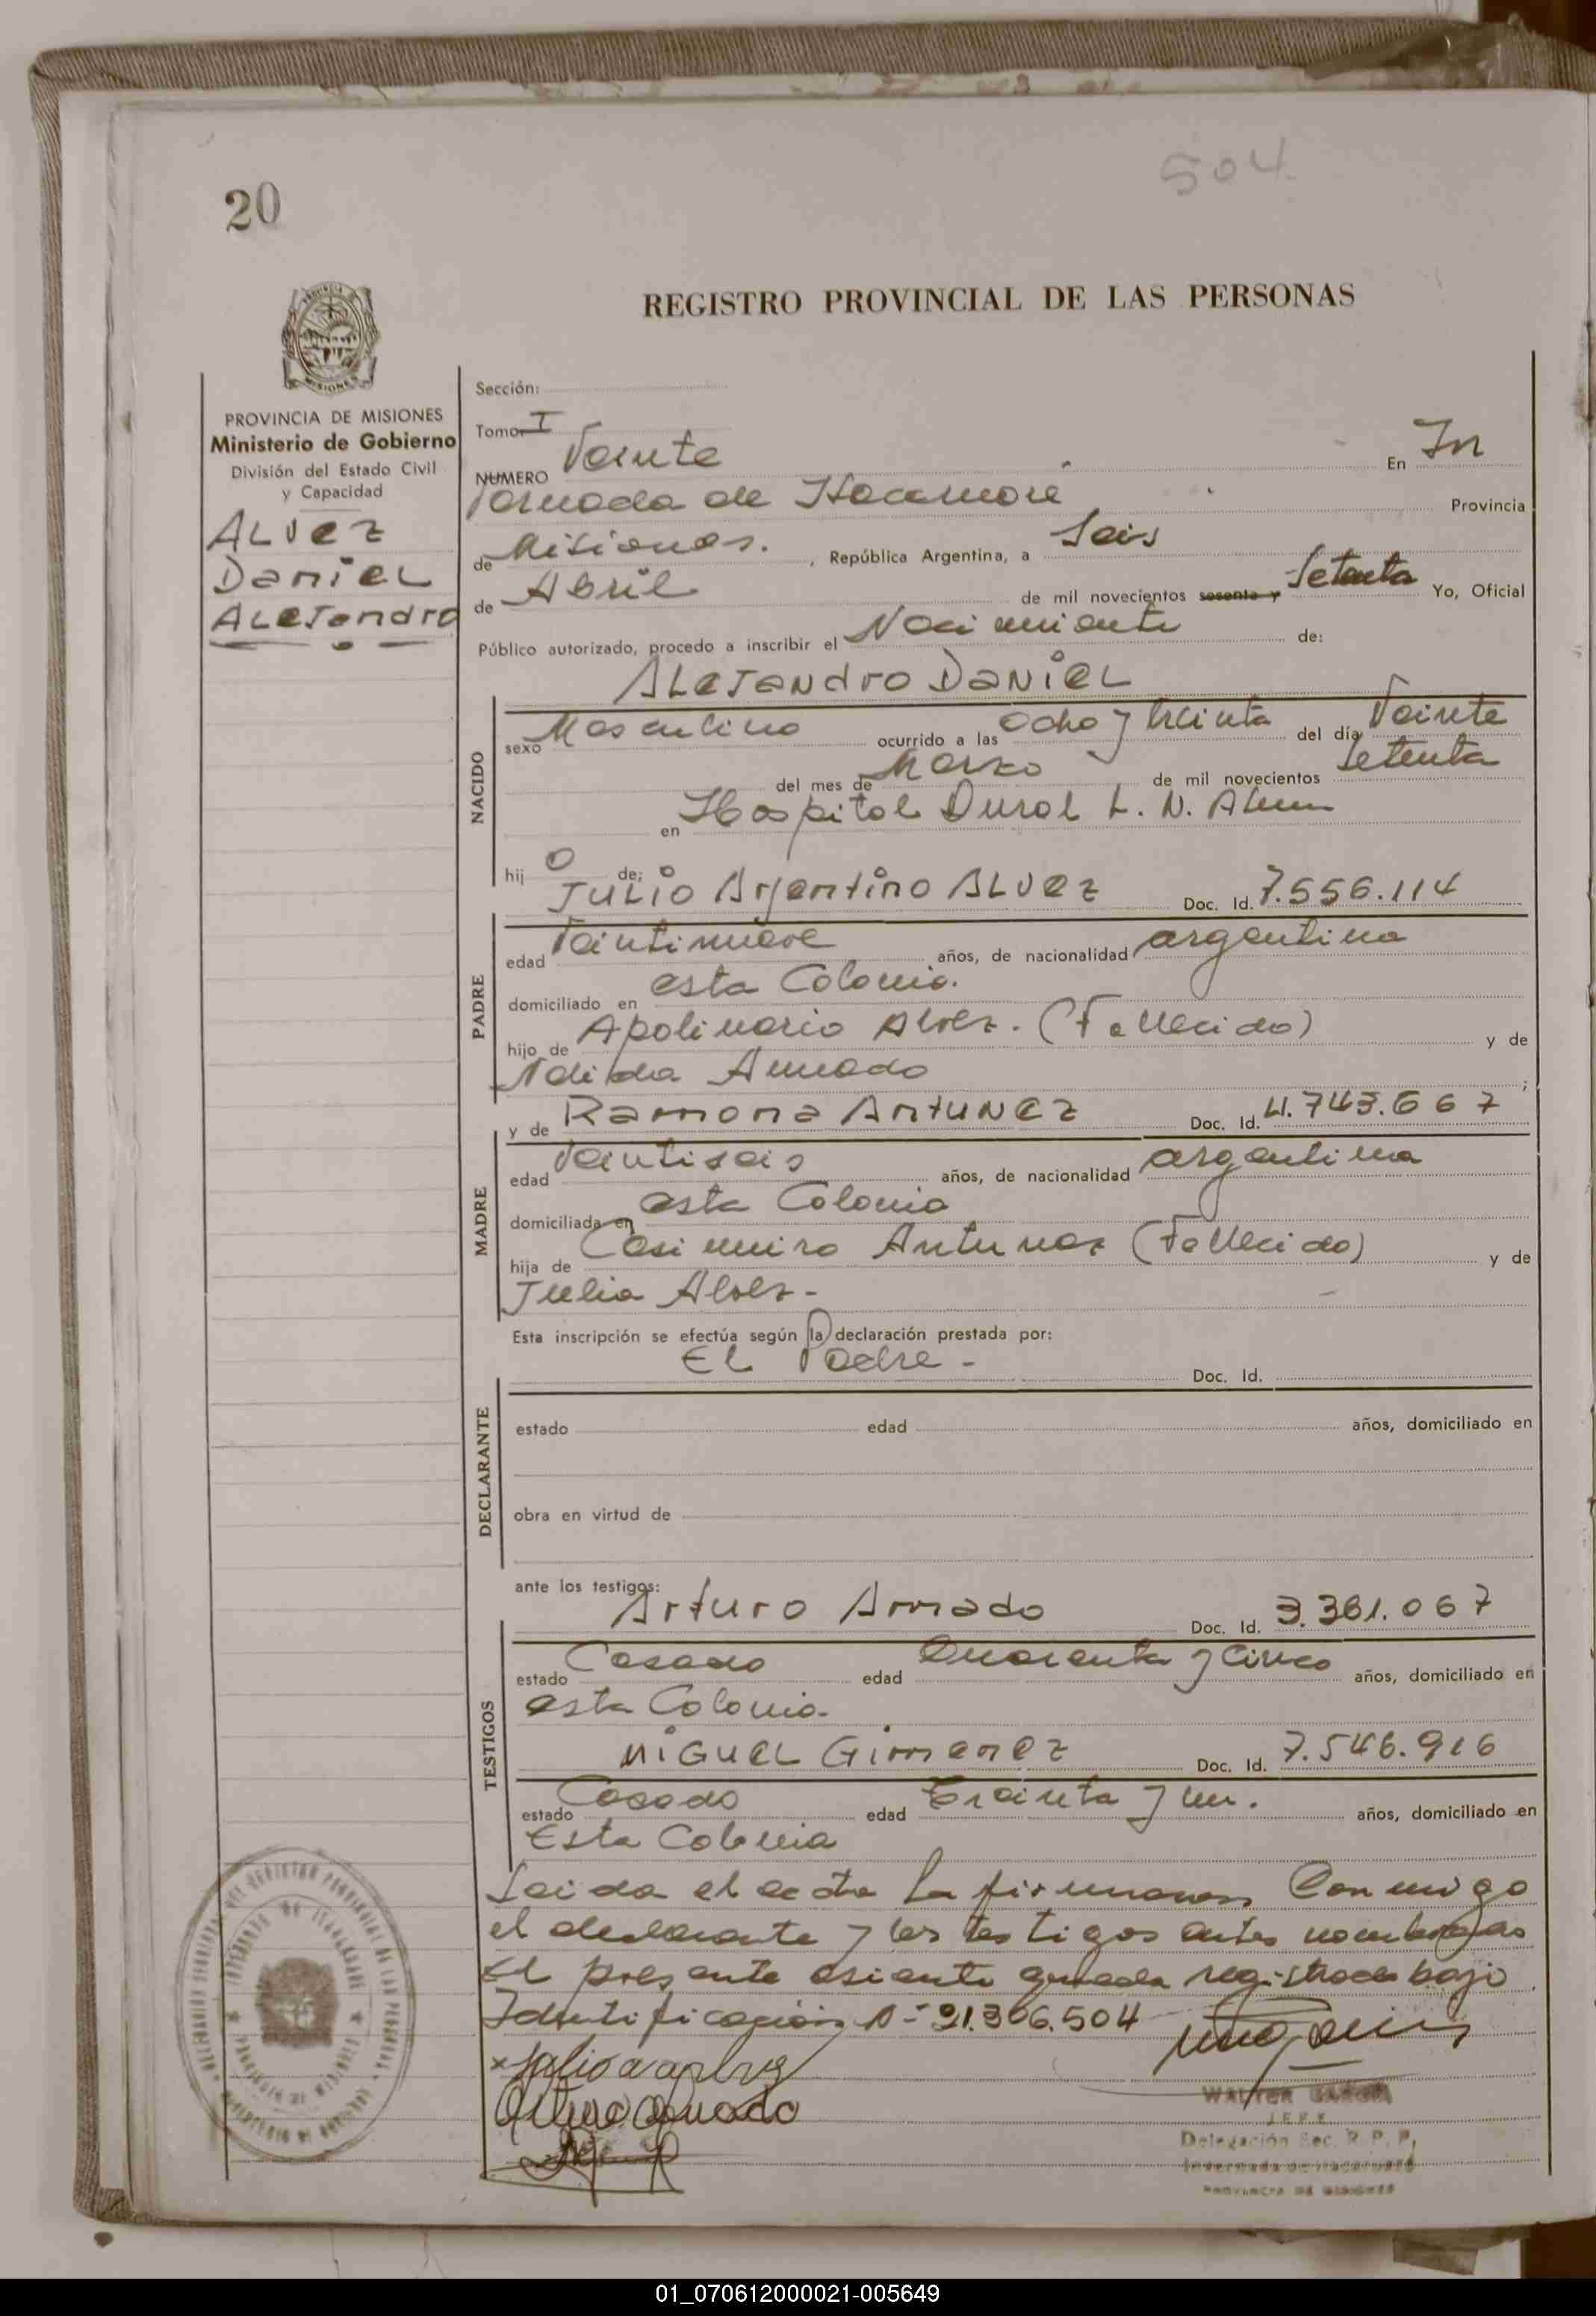 504
20
REGISTRO PROVINCIAL DE LAS PERSONAS
PROVINCIA DE MISIONES
Ministerio de Gobierno
División del Estado Civil
y Capacidad
ALVez
DanieL
ALeJandro
Sección:
Tomo I
NUMERO Veinte En In
vernada de Itacaruaré Provincia
de Misiones. , República Argentina, a Seis
de Abril de mil novecientos sesenta y Setenta Yo, Oficial
Público autorizado, procedo a inscribir el Nacimiento de:
ALeJaNdro DaNieL
NACIDO
sexo Masculino ocurrido a las ocho y treinta del día Veinte
del mes de Marzo de mil novecientos Setenta
en Hospital Rural L. N. Alem
hij o de:
JuLio Argentino ALVez Doc. Id. 7.556.114
PADRE
edad Veintinueve años, de nacionalidad argentina
domiciliado en esta Colonia.
hijo de Apolinario Alvez. (Fallecido) y de
Amado ;
y de Ramona AntuNez Doc. Id. 4.743.667
MADRE
edad Veintiseis años, de nacionalidad argentina
domiciliada en esta Colonia
hija de Casimiro Antunez (Fallecido) y de
Julia Alvez -
Esta inscripción se efectúa según la declaración prestada por:
EL Padre - Doc. Id.
DECLARANTE
estado edad años, domiciliado en
obra en virtud de
ante los testigos:
Arturo Amado Doc. Id. 3.361.067
TESTIGOS
estado Casado edad Cuarenta y Cinco años, domiciliado en
esta Colonia.
MiGueL Gimenez Doc. Id. 7.546.916
estado Casado edad Treinta y un. años, domiciliado en
Esta Colonia
Leida el acta la firmaron Conmigo
el declarante y los testigos antes nombrados
El presente asiento queda registrado bajo
Identificación N- 21.306.504
WALTER
JEFE
Delegación Sec. R. P. P.
Invernada de Itacaruaré
PROVINCIA DE MISIONES
01_070612000021-005649